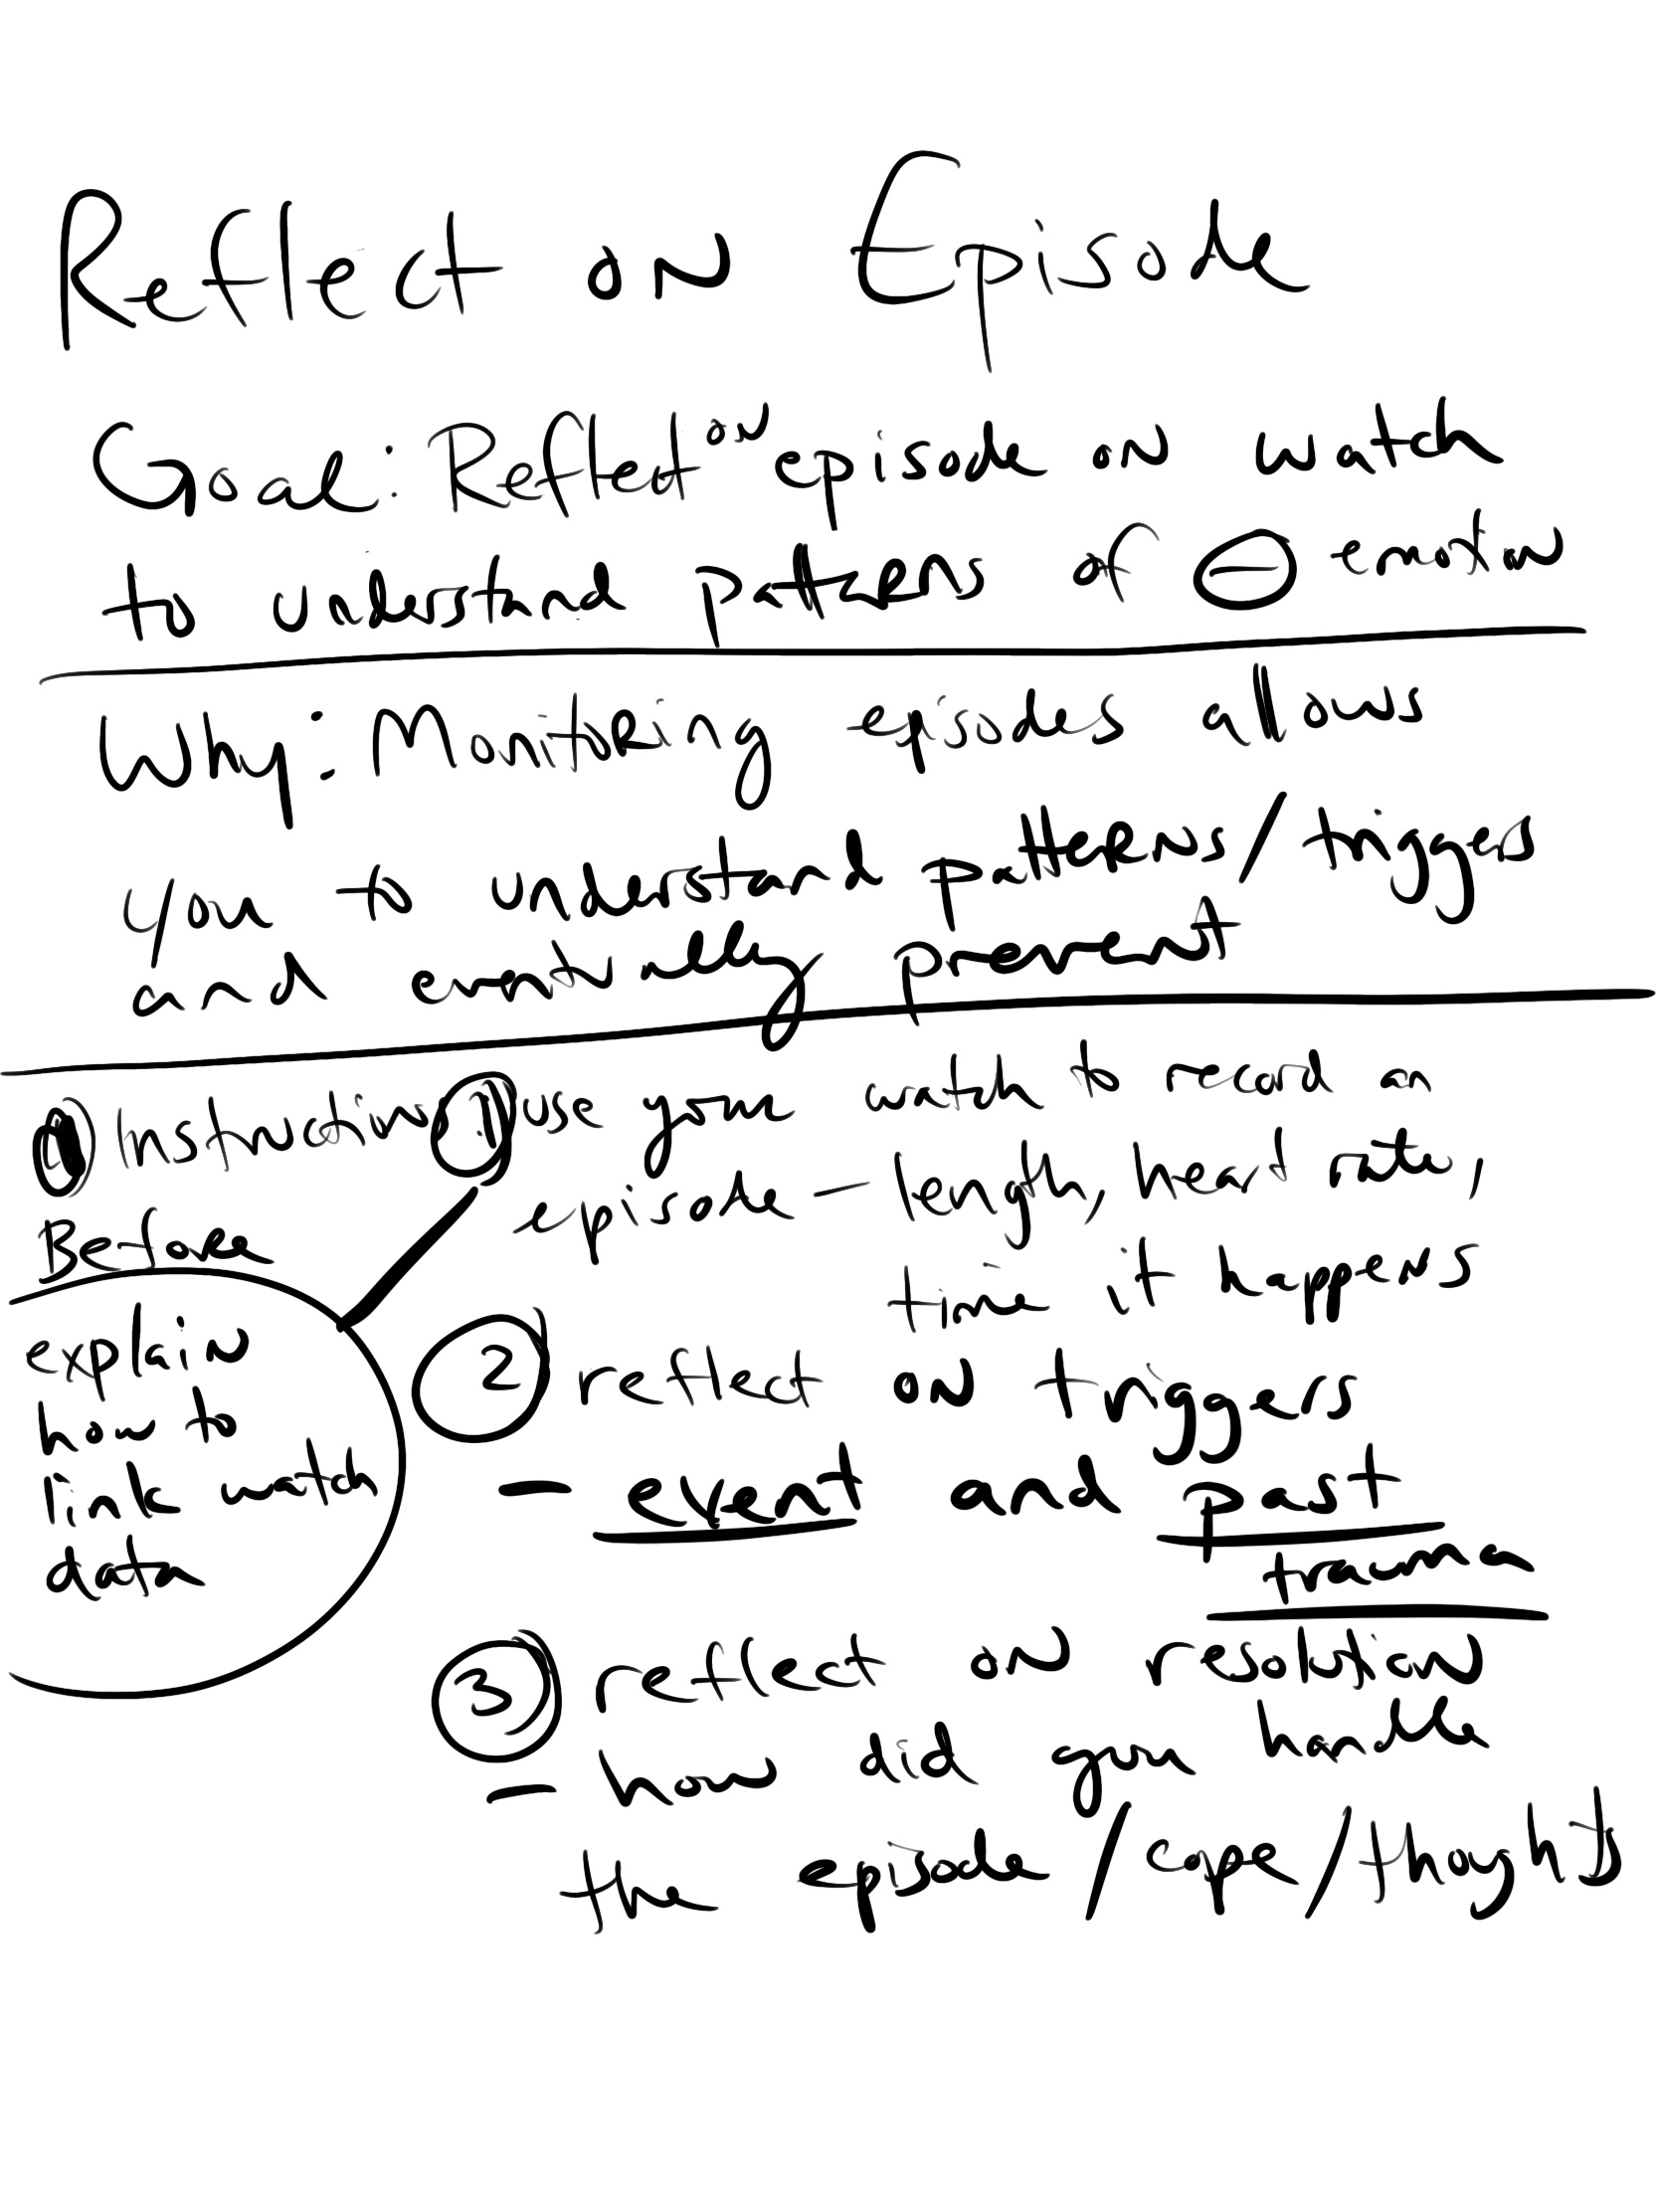 Reflect on Episode
Goal: Reflect on episode on watch
to understand patterns of ⊖ emotion
Why: Monitoring episodes allows
you to understand patterns/triggers
and eventually prevent
Instructions
Before
① use your watch to record an
episode — length, heart rate,
time it happens
explain
how to
link watch
data
② reflect on triggers
- event and past
trauma
③ reflect on resolution
- how did you handle
the episode/cope/thoughts